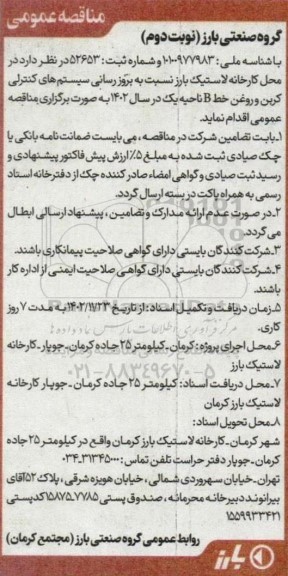 مناقصه عمومی
گروه صنعتی بارز (نوبت دوم)
با شناسه ملی : ۱۰۱۰۰۹۷۷۹۸۳ و شماره ثبت : ۵۲۶۵۳ در نظر دارد در
محل کارخانه لاستیک بارز نسبت به بروز رسانی سیستم های کنترلی
کربن و روغن خط B ناحیه یک در سال ۱۴۰۲ به صورت برگزاری مناقصه
عمومی اقدام نماید.
۱-بابت تضامین شرکت در مناقصه ، می بایست ضمانت نامه بانکی یا
چک صیادی ثبت شده به مبلغ ۵٪ ارزش پیش فاکتور پیشنهادی و
رسید ثبت صیادی و گواهی امضاء صادر کننده چک از دفترخانه اسناد
رسمی به همراه پاکت در بسته ارسال گردد.
۲-در صورت عدم ارائه مدارک و تضامین ، پیشنهاد ارسالی ابطال
می گردد.
۳-شرکت کنندگان بایستی دارای گواهی صلاحیت پیمانکاری باشند.
۴-شرکت کنندگان بایستی دارای گواهی صلاحیت ایمنی از اداره کار
باشند.
۵-زمان دریافت و تکمیل اسناد : از تاریخ ۱۴۰۲/۱۱/۲۳ به مدت ۷ روز
کاری.
۶-محل اجرای پروژه : کرمان-کیلومتر ۲۵ جاده کرمان-جوپار-کارخانه
لاستیک بارز
۷-محل دریافت اسناد : کیلومتر ۲۵ جاده کرمان - جوپار کارخانه
لاستیک بارز کرمان
۸-محل تحویل اسناد:
شهر کرمان-کارخانه لاستیک بارز کرمان واقع در کیلومتر ۲۵ جاده
کرمان-جوپار دفتر حراست تلفن تماس : ۰۳۴-۳۱۳۴۵۰۰۰
تهران-خیابان سهروردی شمالی ، خیابان هویزه شرقی ، پلاک ۵۲ آقای
بیرانوند دبیرخانه محرمانه ، صندوق پستی ۷۷۸۵-۱۵۸۷۵ کدپستی
۱۵۵۹۹۳۳۴۲۱
روابط عمومی گروه صنعتی بارز (مجتمع کرمان)
بارز
۰۲۱-۸۸۳۴۹۶۷۰-۵